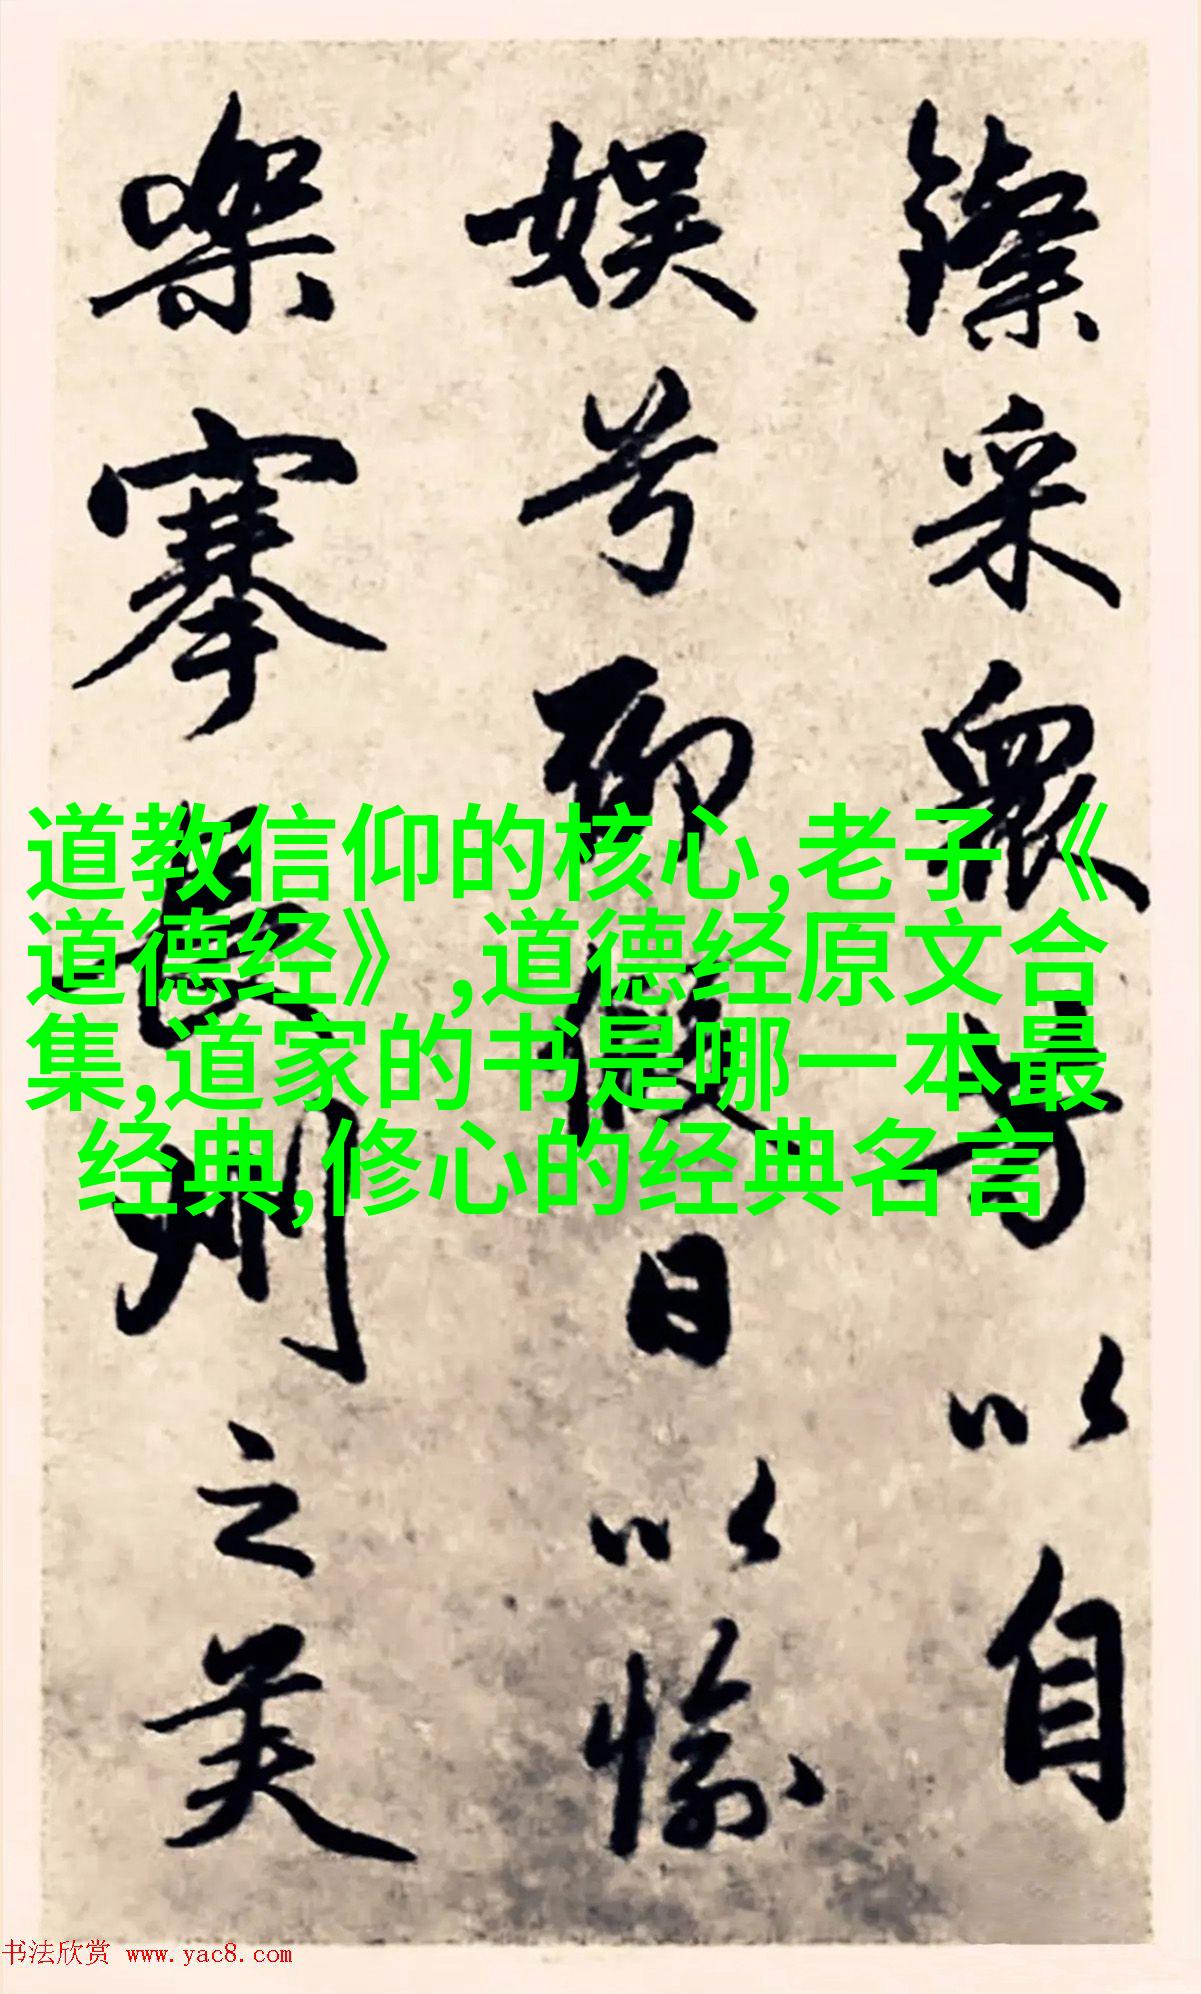 采眾芳以自
娱兮聊假日以愉
樂搴長州之芙
道教信仰的核心,老子《
道德经》,道德经原文合
集,道家的书是哪一本最
经典,修心的经典名言
书法欣赏 www.yac8.com